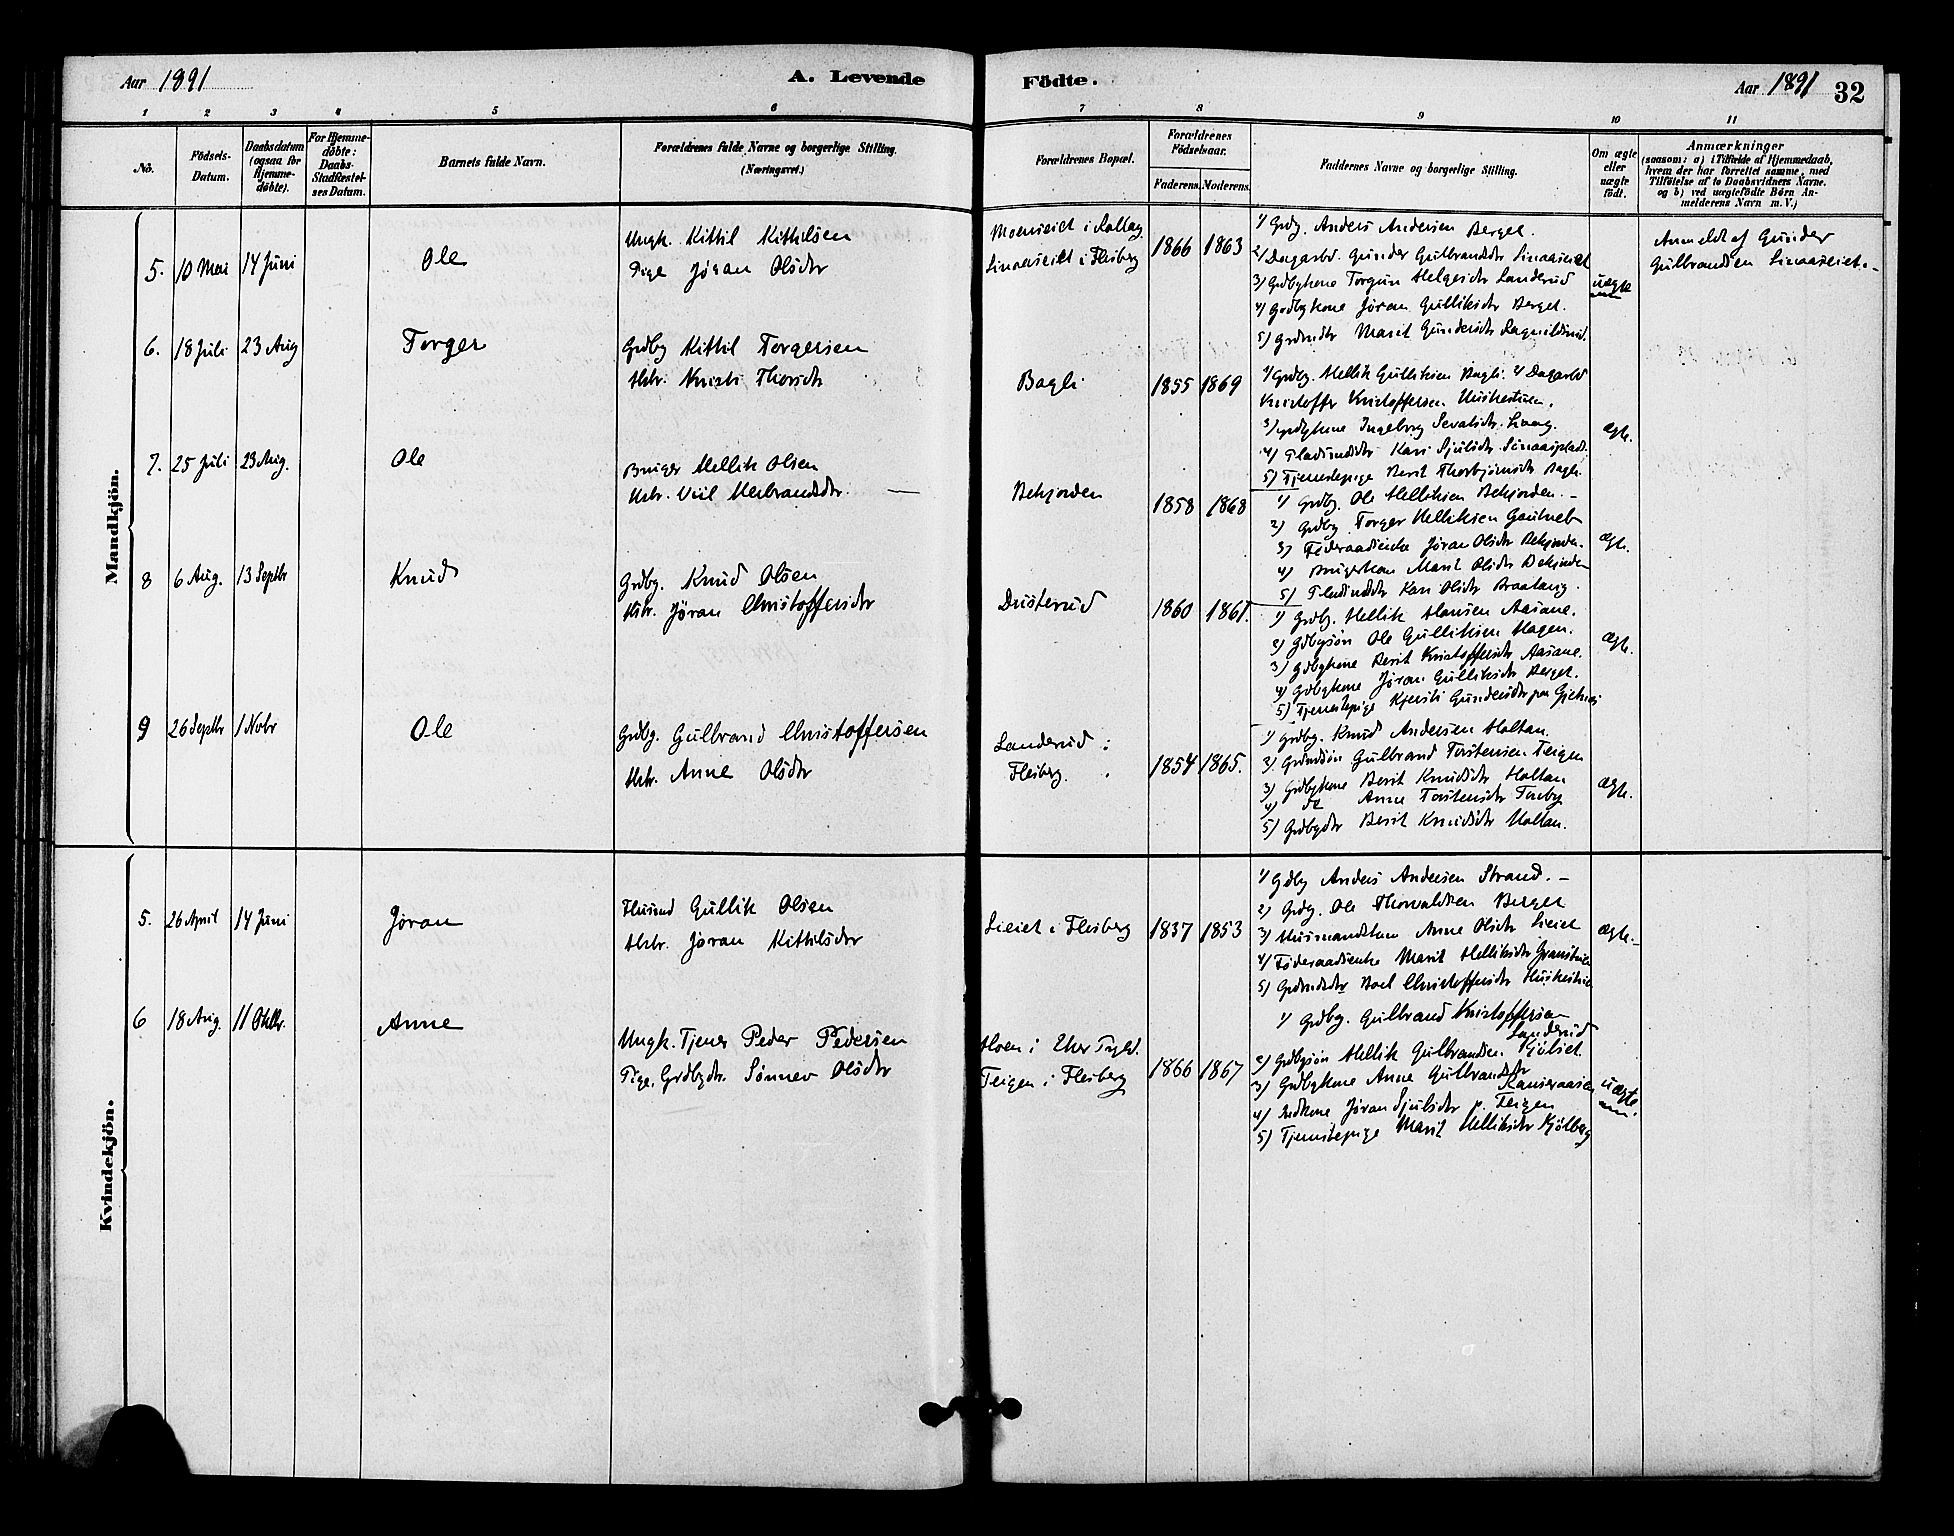 Aar 1891
A. Levende Födte.
Aar 1891 32
1 2 3 4 5 6 7 8 9 10 11
No.
Födsels-Datum.
Daabsdatum (ogsaa for Hjemme-döbte).
For Hjemme-döbte: Daabs-Stadfæstel-ses Datum.
Barnets fulde Navn.
Forældrenes fulde Navne og borgerlige Stilling.
(Næringsvei.)
Forældrenes Bopæl.
Forældrenes Födselsaar.
Faderens. Moderens.
Faddernes Navne og borgerlige Stilling.
Om ægte eller uægte födt.
Anmærkninger
(saasom: a) i Tilfælde af Hjemmedaab, hvem der har forrettet samme, med Tilföielse af to Daabsvidners Navne. og b) ved uægtefödte Börn An-melderens Navn m. V.)
Mandkjön.
5. 10 Mai 14 Juni Ole
Ungk. Kittil Kittilsen
Pige Jøran Olsdtr
i Rollag
i Flesberg
1866 1863
1) Grdbg. Anders Andersen Berget.
2) Dagarbd. Gunder Gulbrandsdtr
3) Grdbgkone Torgun Helgesdtr Landerud
4) Grdbgkone Jøran Gulliksdtr Berget.
5) Marit Gundersdtr
uægte
Anmeldt af Gunder
Gulbrandsen
6. 18 Juli 23 Aug Torger
Grdbg Kittil Torgersen
Hstr. Kristi Thorsdtr
Bagli
1855 1869
1) Grdbg. Hellik Gulliksen Bagli. 2) Dagarbd
Kristoffer Kristoffersen
3) Grdbgkone Ingeborg Sevatsdtr
4) Kari Sjulsdtr
5) Tjenestepige Berit Thorbjørnsdtr Bagli
ægte.
7. 25 Juli 23 Aug. Ole
Bruger Hellik Olsen
Hstr. Viil Herbrandsdtr.
Bekjorden
1858 1868
1) Grdbg. Ole Helliksen Bekjorden.
2) Grdbg Torger Helliksen
3) Føderaadsenke Jøran Olsdtr Bekjorden.
4) Marit Olsdtr Bekjorden
5) Kari Olsdtr
ægte.
8 6 Aug. 13 Septbr Knud
Grdbg. Knud Olsen
Hstr. Jøran Christoffersdtr
Dusterud
1860 1861.
1) Grdbg. Hellik Hansen Aasane.
2) Gdbgsøn Ole Gulliksen Hagen.
3) Gdbgkone Berit Kristoffersdtr Aasane.
4) Grdbgkone Jøran Gulliksdtr Berget.
5) Tjenestepige Kjersti Gundersdtr paa
ægte.
9 26 Septbr 1 Novbr Ole
Grdbg. Gulbrand Christoffersen
Hstr. Anne Olsdtr
Landerud i
Flesberg.
1854 1865.
1) Grdbg. Knud Andersen Haltan.
2. Gulbrand Torstensen Teigen
3) Grdbgkone Berit Knudsdtr Haltan
4) do Anne Torstensdtr
5) Grdbgdtr Berit Knudsdtr Haltan.
ægte.
Kvindekjön.
5. 26 April 14 Juni Jøran
Husmd Gullik Olsen
Hstr. Jøran Kittilsdtr
Lieiet i Flesberg
1837 1853
1) Gdbg Anders Andersen Strand.
2) Grdbg. Ole Thorvaldsen Berget
3) Husmandskone Anne Olsdtr Lieiet
4) Føderaadsenke Marit Helliksdtr
5) Boel Christoffersdtr
ægte.
6 18 Aug. 11 Oktbr. Anne
Ungk. Tjener Peder Pedersen
Pige, Grdbgdtr. Sønnev Olsdtr
Hoen i Eker
Teigen i Flesberg
1866 1867
1) Grdbg. Gulbrand Kristoffersen
Landerud
2) Grdbgsøn Hellik Gulbrandsen
3) Grdbgkone Anne Gulbrandsdtr
4) Jøran Sjulsdtr p. Teigen
5) Tjenestepige Marit Helliksdtr Kjölberg
uægte.